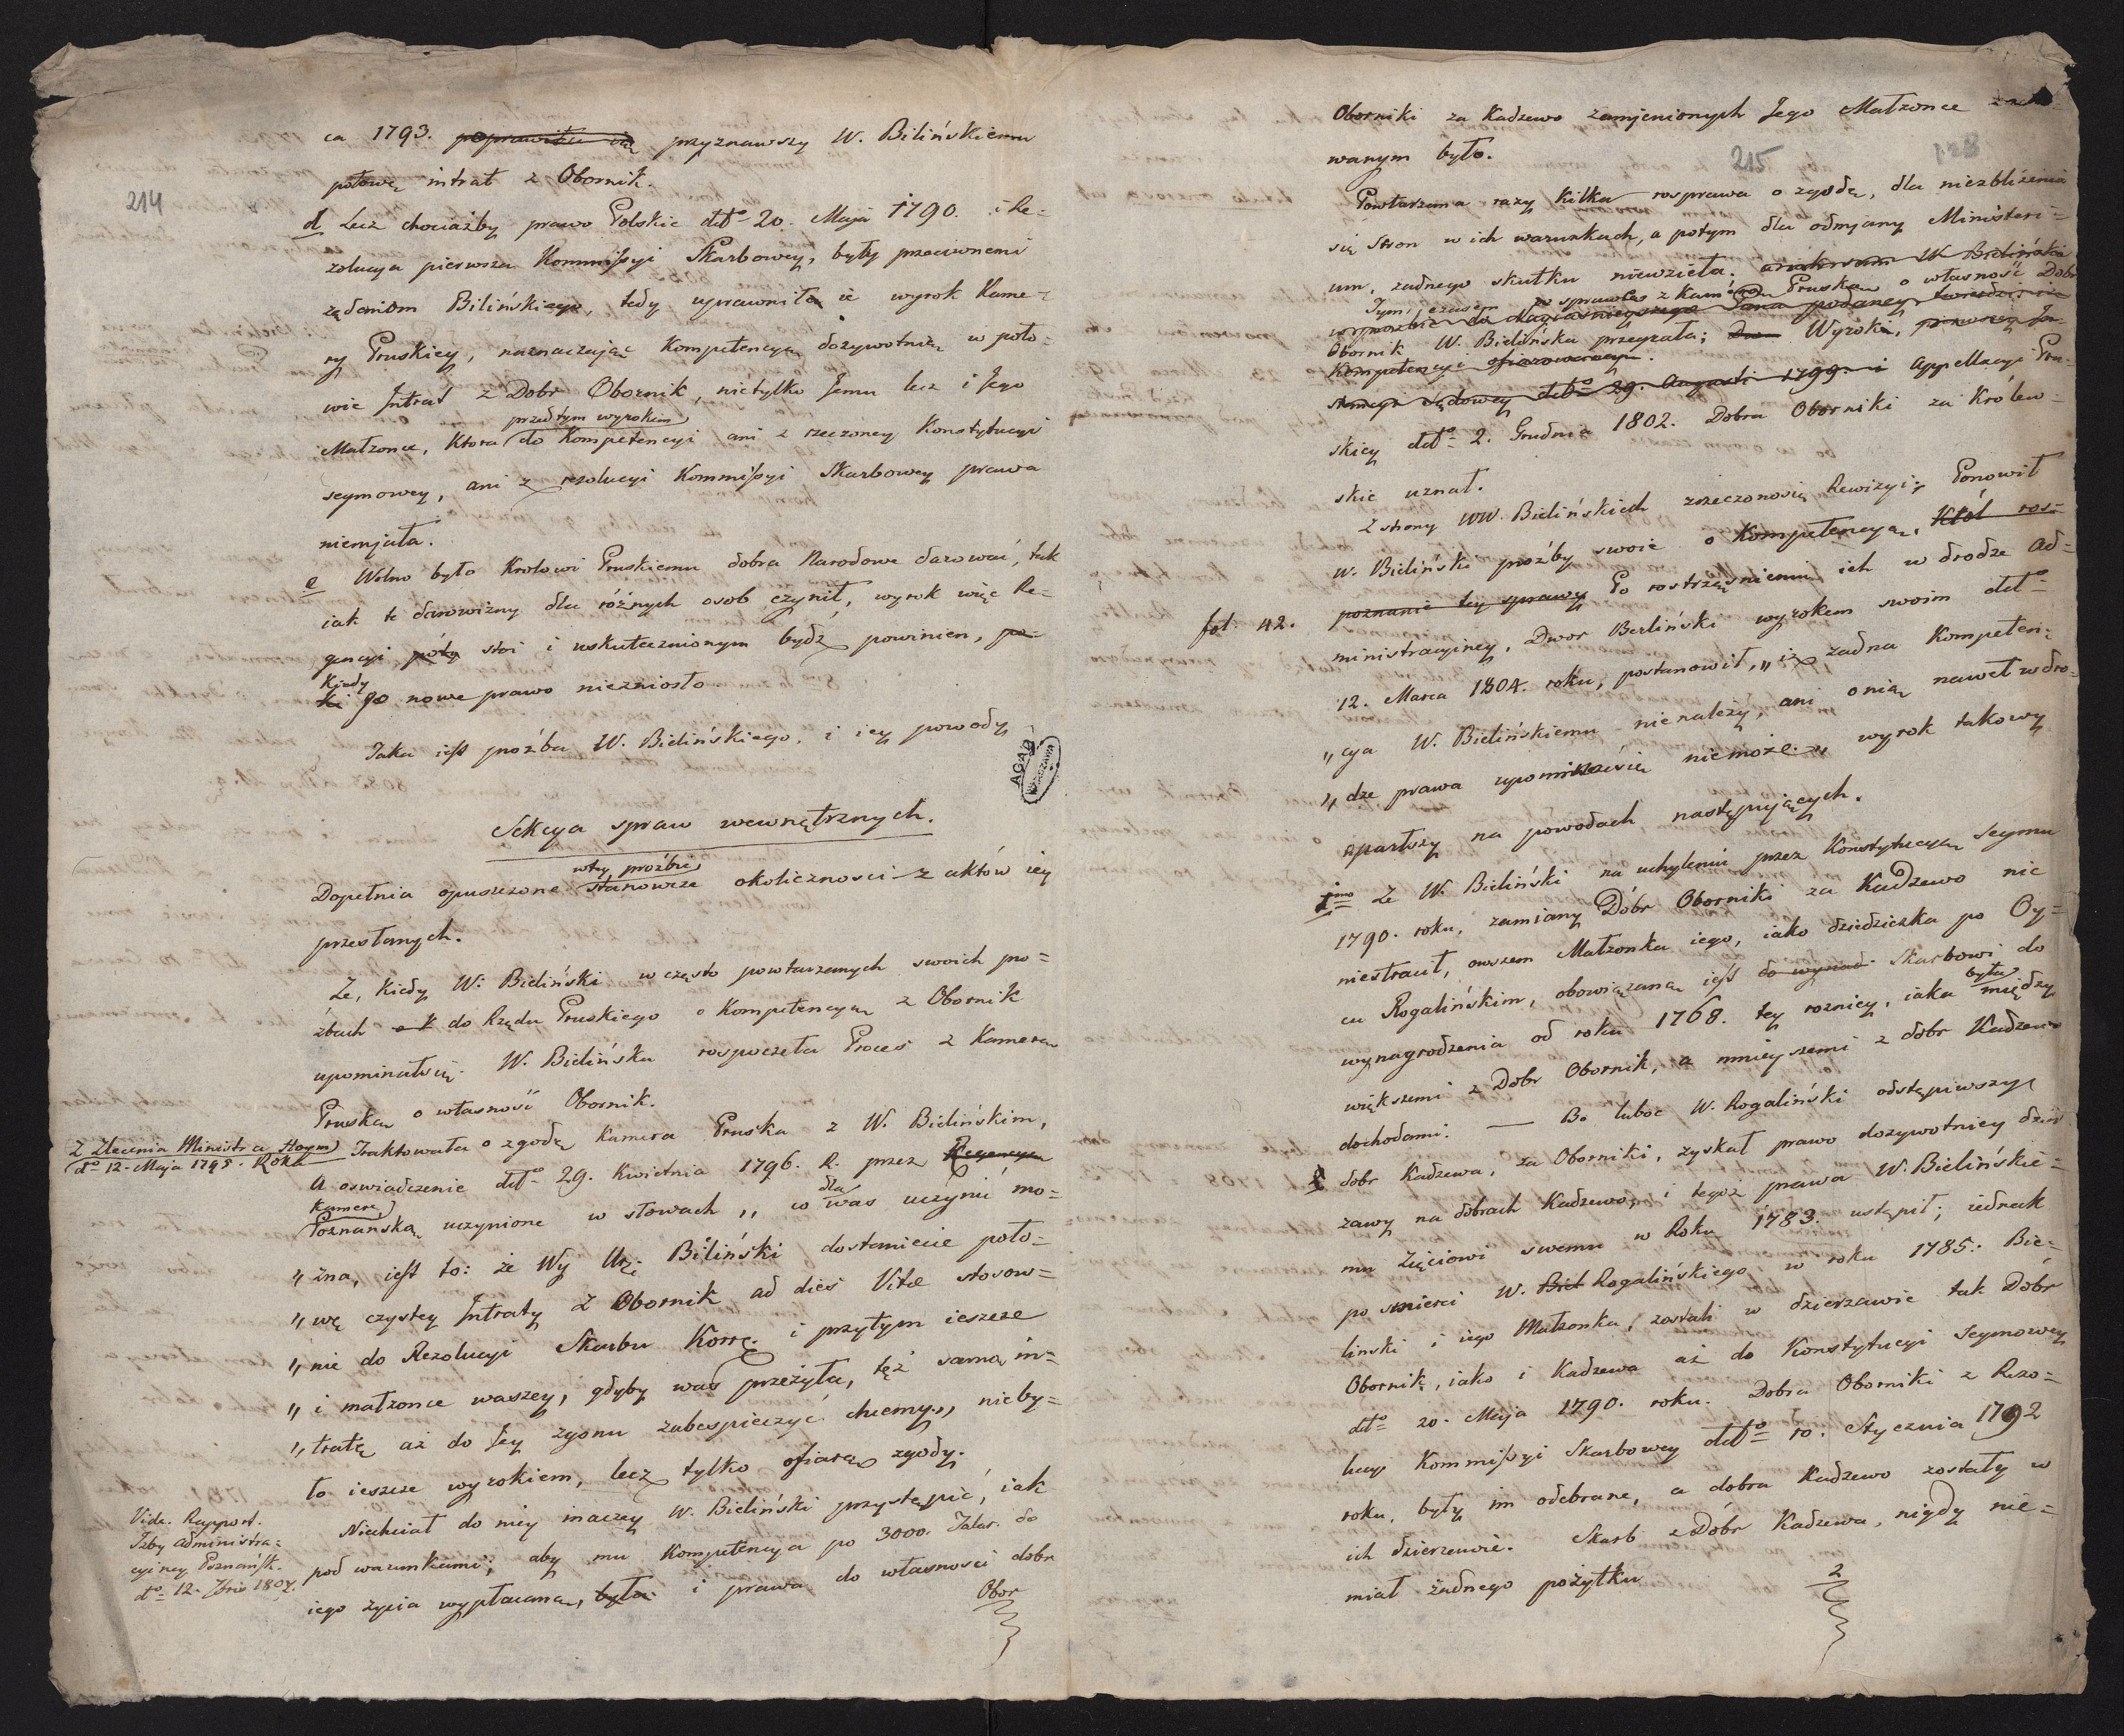 214
ca 1793. poprawiła ią przyznawszy W. Bilińskiemu
połowę intrat z Obornik.
d Lecz chociażby prawo Polskie dtto 20. Maja 1790. i Re-
zolucya pierwsza Kommissyi Skarbowey, były przeciwnemi
żądaniom Bilińskiego, tedy uprawniła ie wyrok Kame-
ry Pruskiey, naznaczając Kompetencyą dożywotnią w poło-
wie Intrat z Dobr Obornik, nietylko Jemu lecz i Jego
przedtym wyrokiem
Małżonce, Ktora do Kompetencyi ani z rzeczoney Konstytucyi
seymowey, ani z rezolucyi Kommissyi Skarbowey prawa
niemjała.
e Wolno było Krolowi Pruskiemu dobra Narodowe darować, tak
iak te darowizny dla różnych osob czynił, wyrok więc Re-
gencyi póty stoi i uskutecznionym bydź powinien, po-
Kiedy
ki go nowe prawo niezniosło.
Taka iest proźba W. Bielińskiego, i iey powody
AGAD
WARSZAWA
Sekcya spraw wewnętrznych.
wtey proźbie
Dopełnia opuszczone stanowcze okoliczności z aktów iey
przesłanych.
Że, kiedy W. Bieliński w często powtarzanych swoich pro=
źbach o K do Rządu Pruskiego o Kompetencyą z Obornik
upominałsię W. Bielińska rospoczeła Proces z Kamerą
Pruską o własność Obornik.
Z Zlecenia Ministra Hoym
dto 12. Maja 1795. Roku
Traktowała o zgodę Kamera Pruska z W. Bielińskim,
a oswiadczenie dtto 29. Kwietnia 1796. R. przez Regencyą
Kamerę dla
Poznańską uczynione w słowach ,, co was uczynić mo=
,, żna, iest to: że Wy Urz. Biliński dostaniecie poło=
,, wę czystey Intraty z Obornik ad dies Vitæ stosow=
,, nie do Rezolucyi Skarbu Korrę. i przytym ieszcze
,, i małżonce waszey, gdyby was przeżyła, tęż samą in=
,, tratę aż do Jey zgonu zabespieczyć chcemy,, nieby=
ło ieszcze wyrokiem, lecz tylko ofiarą zgody.
Vide. Rapport.
Izby administra=
cyiney Poznańsk.
dto 12. 7bris 1807.
Niechciał do niey inaczey W. Bieliński przystąpić, iak
pod warunkami; aby mu Kompetencya po 3000. Talar. do
iego życia wypłacana, była i prawa do własności dobr
Obor
215
Oborniki za Kadzewo zamjenionych Jego Małżonce
wanym było.
Powtarzana razy Kilka rosprawa o zgodę, dla niezbliżenia
się Stron w ich warunkach, a potym dla odmjany Ministeri=
um, żadnego skutku niewzięła. W Bielińska
Tym czasem sprawę z Kamerą Pruską o własność Dobr
w proźbie do Nayiaśnieyszego Pana podaney twierdzi, iż
Obornik W. Bielińska przegrała; Dwa Wyroki, pierwszy In-
Kompetencyi ofiarowaney.
stancyi sądowey dtto 29. Augusti 1799. i Appellacyi Pru-
skiey dtto 2. Grudnia 1802. Dobra Oborniki za Królew-
skie uznał.
Z strony WW. Bielińskich zrzeczonosię Rewizyi; Ponowił
W. Bieliński proźby swoie o Kompetencyą, Któl ros-
fol. 42.
poznanie tey sprawy Po rostrząśnieniu ich w drodze Ad=
ministracyiney, Dwor Berliński wyrokem swoim dtto
12. Marca 1804. roku, postanowił, ,, iż żadna Kompeten=
,, cya W. Bielińskiemu nienależy, ani onią nawet w dro-
,, dze prawa upominaćsię niemoże. ,, wyrok takowy
oparłszy na powodach następujących.
1mo Że W. Bieliński na uchyleniu przez Konstytucyą Seymu
1790. roku, zamiany Dóbr Oborniki za Kadzewo nic
niestracił, owszem Małżonka iego, iako dziedziczka po Oy=
cu Rogalińskim, obowiązaną iest do wynad Skarbowi do
była
wynagrodzenia od roku 1768. tey roznicy, iaka między
większemi z Dobr Obornik, a mnieyszemi z dobr Kadzewa
dochodami. — Bo luboć W. Rogaliński odstąpiwszy
dobr Kadzewa, za Oborniki, zyskał prawo dożywotniey dzier
żawy na dobrach Kadzewo, i tegoż prawa W. Bielińskie=
mu Zięciowi swemu w Roku 1783. ustąpił; iednak
po smierci W. Biel Rogalińskiego w roku 1785. Bie=
linski i iego Małżonka, zostali w dzierżawie tak Dóbr
Obornik, iako i Kadzewa aż do Konstytucyi Seymowey
dto 20. Maja 1790. roku. Dobra Oborniki z Rezo=
lucyi Kommissyi Skarbowey dtto 10. Stycznia 1792
roku, były im odebrane, a dobra Kadzewo zostały w
ich dzierżawie. Skarb z Dóbr Kadzewa, nigdy nie=
miał żadnego pożytku
2